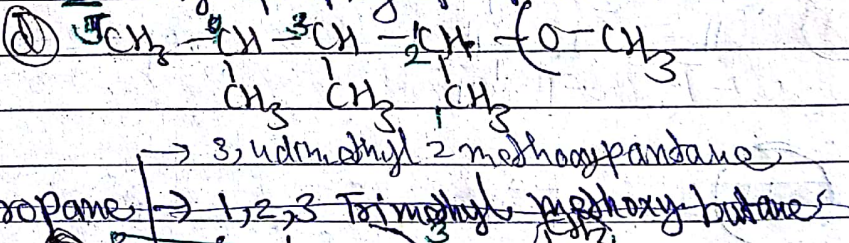 (d) 5CH3 - 4CH - 3CH - 2CH - (O - CH3
CH3 CH3 1CH3
→ 3,4dimethyl 2 methoxypantane
ropane → 1,2,3 Trimethyl methoxy butane